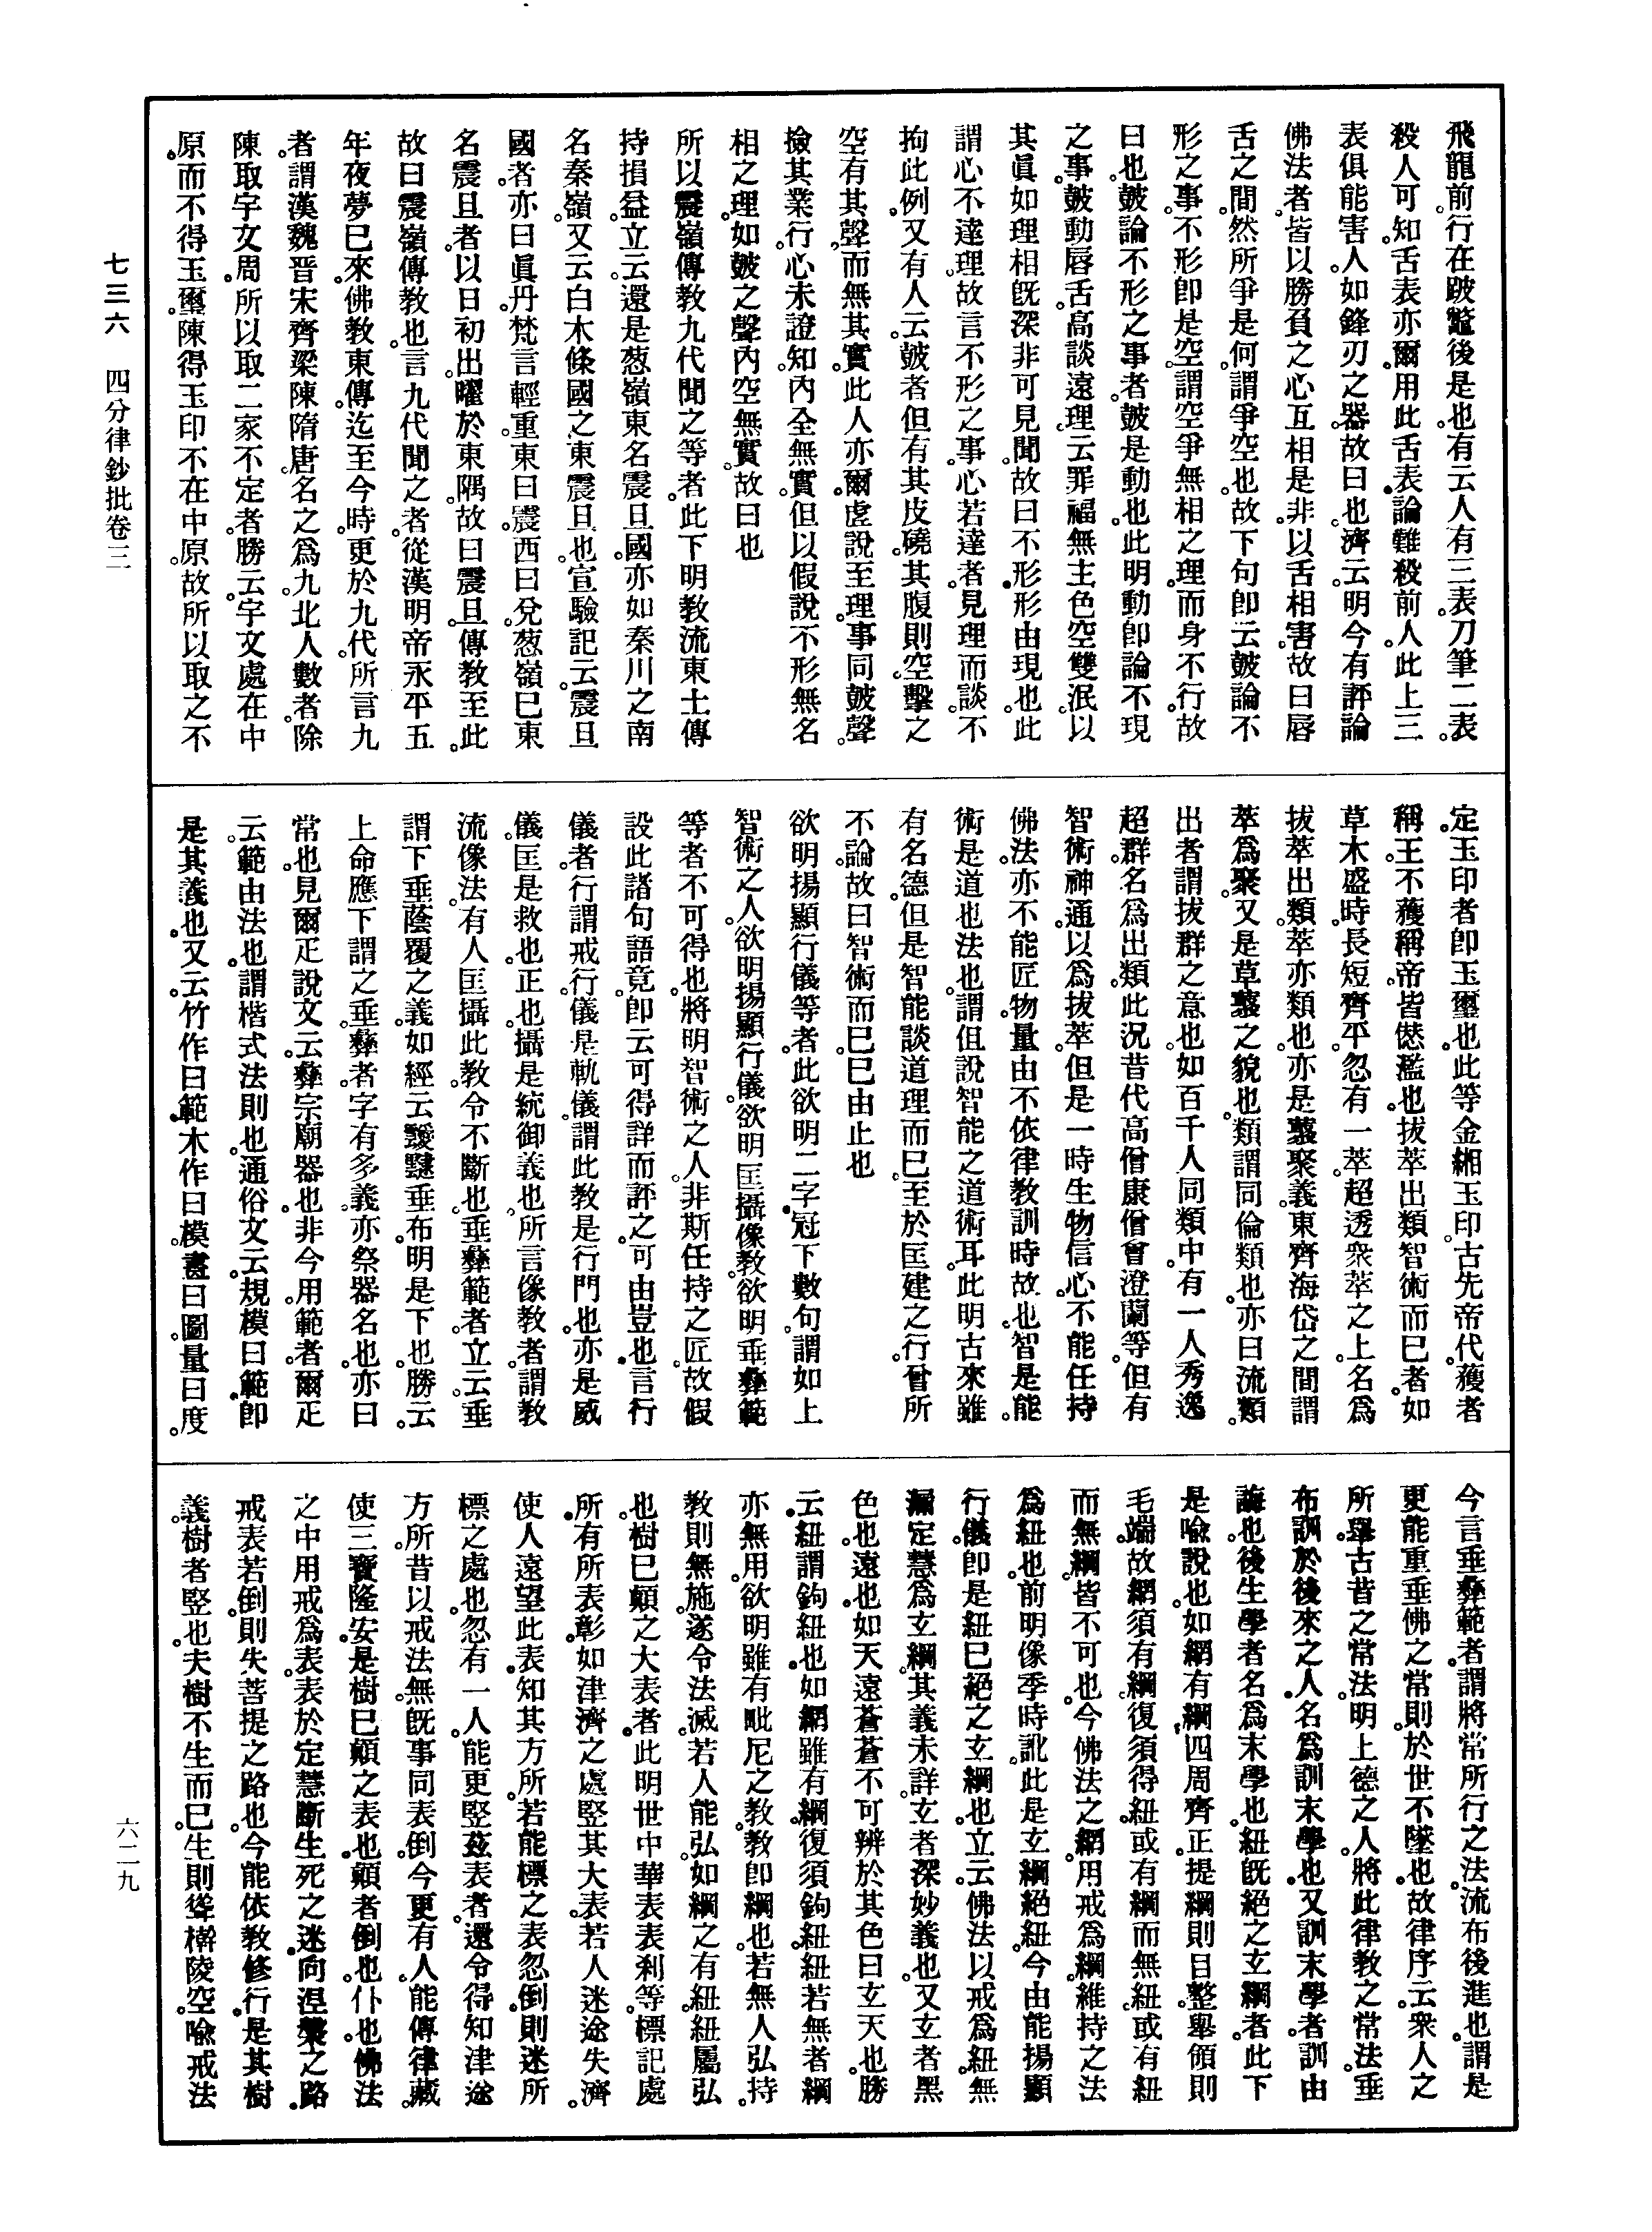 飛龍前。行在跛鼈後是也。有云人有三表。刀筆二表。
殺人可知。舌表亦爾。用此舌表。論難殺前人。此上三
表俱能害人。如鋒刃之器。故曰也。濟云。明今有評論
佛法者。皆以勝負之心互相是非。以舌相害。故曰唇
舌之間。然所爭是何。謂爭空也。故下句即云皷論不
形之事。不形即是空。謂空爭無相之理。而身不行。故
曰也。皷論不形之事者。皷是動也。此明動即論不現
之事。皷動唇舌。高談遠理。云罪福無主色空雙泯。以
其眞如理相既深非可見聞。故曰不形。形由現也。此
謂心不達理。故言不形之事。心若達者。見理而談。不
拘此例。又有人云。皷者但有其皮。磽其腹則空。擊之
空有其聲。而無其實。此人亦爾。虛說至理。事同皷聲。
撿其業行。心未證知。內全無實。但以假說不形無名
相之理。如皷之聲內空無實。故曰也
所以震嶺傳教九代聞之等者。此下明教流東土傳
持損益。立云。還是葱嶺東名震旦國。亦如秦川之南
名秦嶺。又云白木條國之東震旦也。宣驗記云。震旦
國者。亦曰眞丹。梵言輕重。東曰震。西曰兌。葱嶺已東
名震旦者。以日初出曜於東隅。故曰震旦。傳教至此。
故曰震嶺傳教也。言九代聞之者。從漢明帝永平五
年夜夢已來。佛教東傳。迄至今時。更於九代。所言九
者。謂漢魏晋宋齊梁陳隋唐。名之爲九。北人數者。除
陳取宇文周。所以取二家不定者。勝云。宇文處在中
原。而不得玉璽。陳得玉印不在中原。故所以取之不
定。玉印者即玉璽也。此等金緗玉印。古先帝代。蒦者
稱王。不蒦稱帝。皆僽濫也。拔萃出類智術而已者。如
草木盛時。長短齊平。忽有一萃。超透衆萃之上。名爲
拔萃出類。萃亦類也。亦是藂聚義。東齊海岱之間謂
萃爲聚。又是草藂之貌也。類謂同倫類也。亦曰流類。
出者謂拔群之意也。如百千人同類中。有一人秀逸
超群。名爲出類。此況昔代高僧康僧會澄蘭等。但有
智術神通。以爲拔萃。但是一時生物信心。不能任持
佛法。亦不能匠物。量由不依律教訓時故也。智是能。
術是道也。法也。謂但說智能之道術耳。此明古來雖
有名德。但是智能談道理而已。至於匡建之行。曾所
不論。故曰智術而已。已由止也
欲明揚顯行儀等者。此欲明二字。冠下數句。謂如上
智術之人。欲明揚顯行儀。欲明匡攝像教。欲明垂彜範
等者不可得也。將明智術之人。非斯任持之匠。故假
設此諸句語竟。即云可得詳而評之。可由豈也。言行
儀者。行謂戒行。儀是軌儀。謂此教是行門也。亦是威
儀。匡是救也。正也。攝是統御義也。所言像教者。謂教
流像法。有人匡攝此教。令不斷也。垂彜範者。立云。垂
謂下垂蔭覆之義。如經云靉靆垂布。明是下也。勝云。
上命應下謂之垂。彜者。字有多義。亦祭器名也。亦曰
常也。見爾疋。說文云。彜宗廟器也。非今用。範者。爾疋
云。範由法也。謂楷式法則也。通俗文云。規模曰範。即
是其義也。又云。竹作曰範。木作曰模。畫曰圖。量曰度。
今言垂彜範者。謂將常所行之法。流布後進也。謂是
更能重垂佛之常則。於世不墜也。故律序云。衆人之
所舉。古昔之常法。明上德之人。將此律教之常法。垂
布訓於後來之人。名爲訓末學也。又訓末學者。訓由
誨也。後生學者名爲末學也。紐既絕之玄綱者。此下
是喩說也。如網有綱四周齊正。提綱則目整。舉領則
毛端。故網須有綱。復須得紐。或有綱而無紐。或有紐
而無綱。皆不可也。今佛法之網。用戒爲綱。維持之法
爲紐也。前明像季時訛。此是玄綱絕紐。今由能揚顯
行儀。即是紐已絕之玄綱也。立云。佛法以戒爲紐。無
漏定慧爲玄綱。其義未詳。玄者深妙義也。又玄者黑
色也。遠也。如天遠蒼蒼不可辨於其色曰玄天也。勝
云。紐謂鉤紐也。如網雖有綱。復須鉤紐。紐若無者。綱
亦無用。欲明雖有毗尼之教。教即綱也。若無人弘持。
教則無施。遂令法滅。若人能弘。如綱之有紐。紐屬弘
也。樹已顚之大表者。此明世中華表表刹等。標記處
所。有所表彰。如津濟之處竪其大表。若人迷途失濟。
使人遠望此表。知其方所。若能標之表忽倒。則迷所
標之處也。忽有一人。能更竪茲表者。還令得知津途
方所。昔以戒法無既。事同表倒。今更有人。能傳律藏。
使三寳隆安。是樹已顚之表也。顚者倒也。仆也。佛法
之中。用戒爲表。表於定慧。斷生死之迷。向涅槃之路。
戒表若倒。則失菩提之路也。今能依教修行。是其樹
義。樹者竪也。夫樹不生而已。生則聳榦陵空。喩戒法
七三六　四分律鈔批卷三
六二九